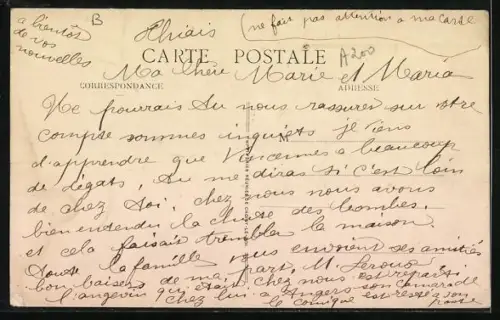 a bientôt
de vos
nouvelles
B
Thiais
(ne fait pas attention a ma carte
CARTE POSTALE
A200
Ma chère Marie et Maria
CORRESPONDANCE
ADRESSE
Ne pourrais tu nous rassurer sur votre
compte sommes inquiets je viens
M
d'apprendre que Vincennes a beaucoup
de dégats, tu me diras si c'est loin
de chez toi, chez nous nous avons
bien entendu la chute des bombes.
et cela faisait trembler la maison.
Toute la famille vous envoient ses amitiés
bon baisers de ma part, M. Leroux
l'angevin qui était chez nous est reparti
chez lui a Angers son camarade
le comique est resté a son
poste